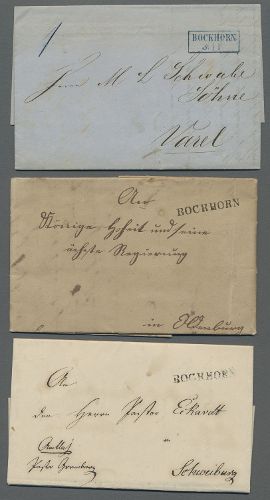 1
BOCKHORN
Herrn M L Schwabe
Söhne
Varel
An
BOCKHORN
Königl Hoheit und seine
Regierung
in Oldenburg
An
BOCKHORN
den Herrn Pastor Eckardt
in
Pastor
Schweiburg